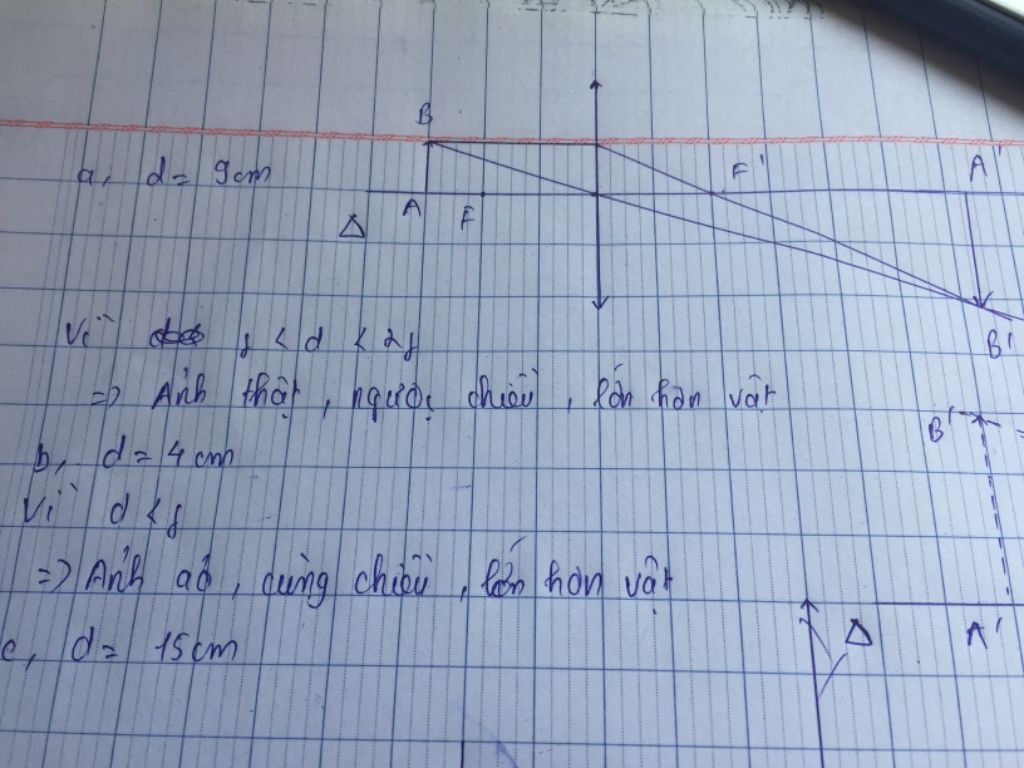 B
a, d = 9cm
F'
A'
A
F
Δ
B'
Vì f < d < 2f
=> Ảnh thật, ngược chiều, lớn hơn vật
B'
b, d = 4cm
Vì d < f
=> Ảnh ảo, cùng chiều, lớn hơn vật
Δ
A'
c, d = 15cm